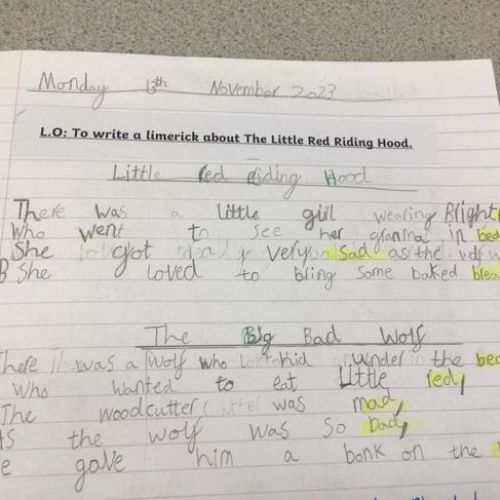 Monday 13th November 2023
L.O: To write a limerick about The Little Red Riding Hood.
Little red Riding Hood
There was a little girl wearing Bright
Who went to see her granma in bed
She got very sad as the
B She loved to bling some baked
The Big Bad Wolf
There was a wolf who hid under the bed
Who wanted to eat Little red,
The woodcutter was mad,
As the wolf was so bad,
e gave him a bonk on the